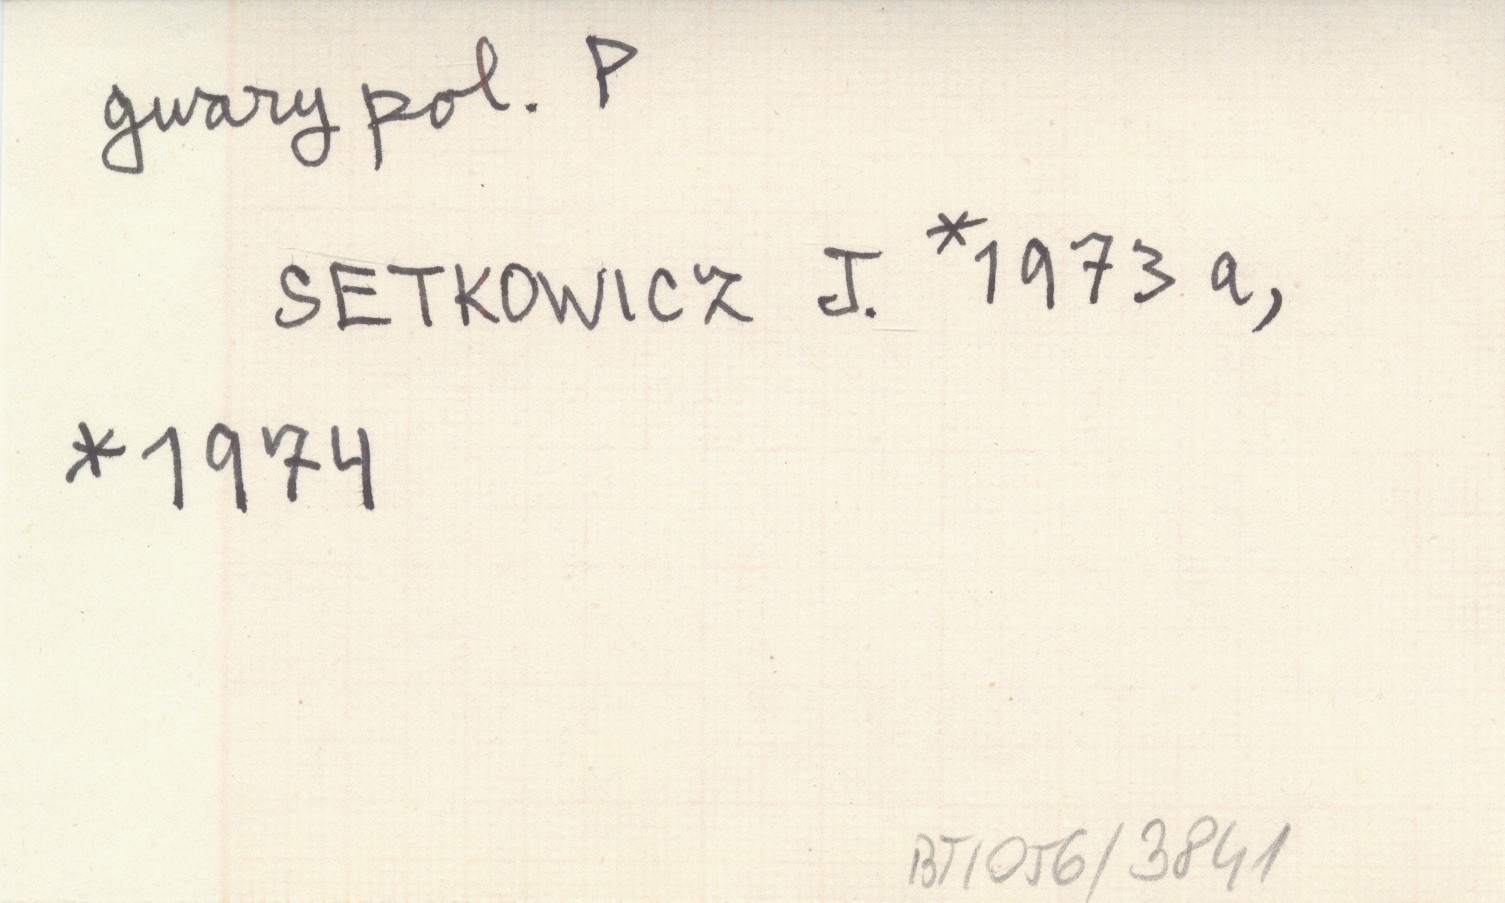 gwary pol. P
SETKOWICZ J. *1973 a,
*1974
BT/056/3841